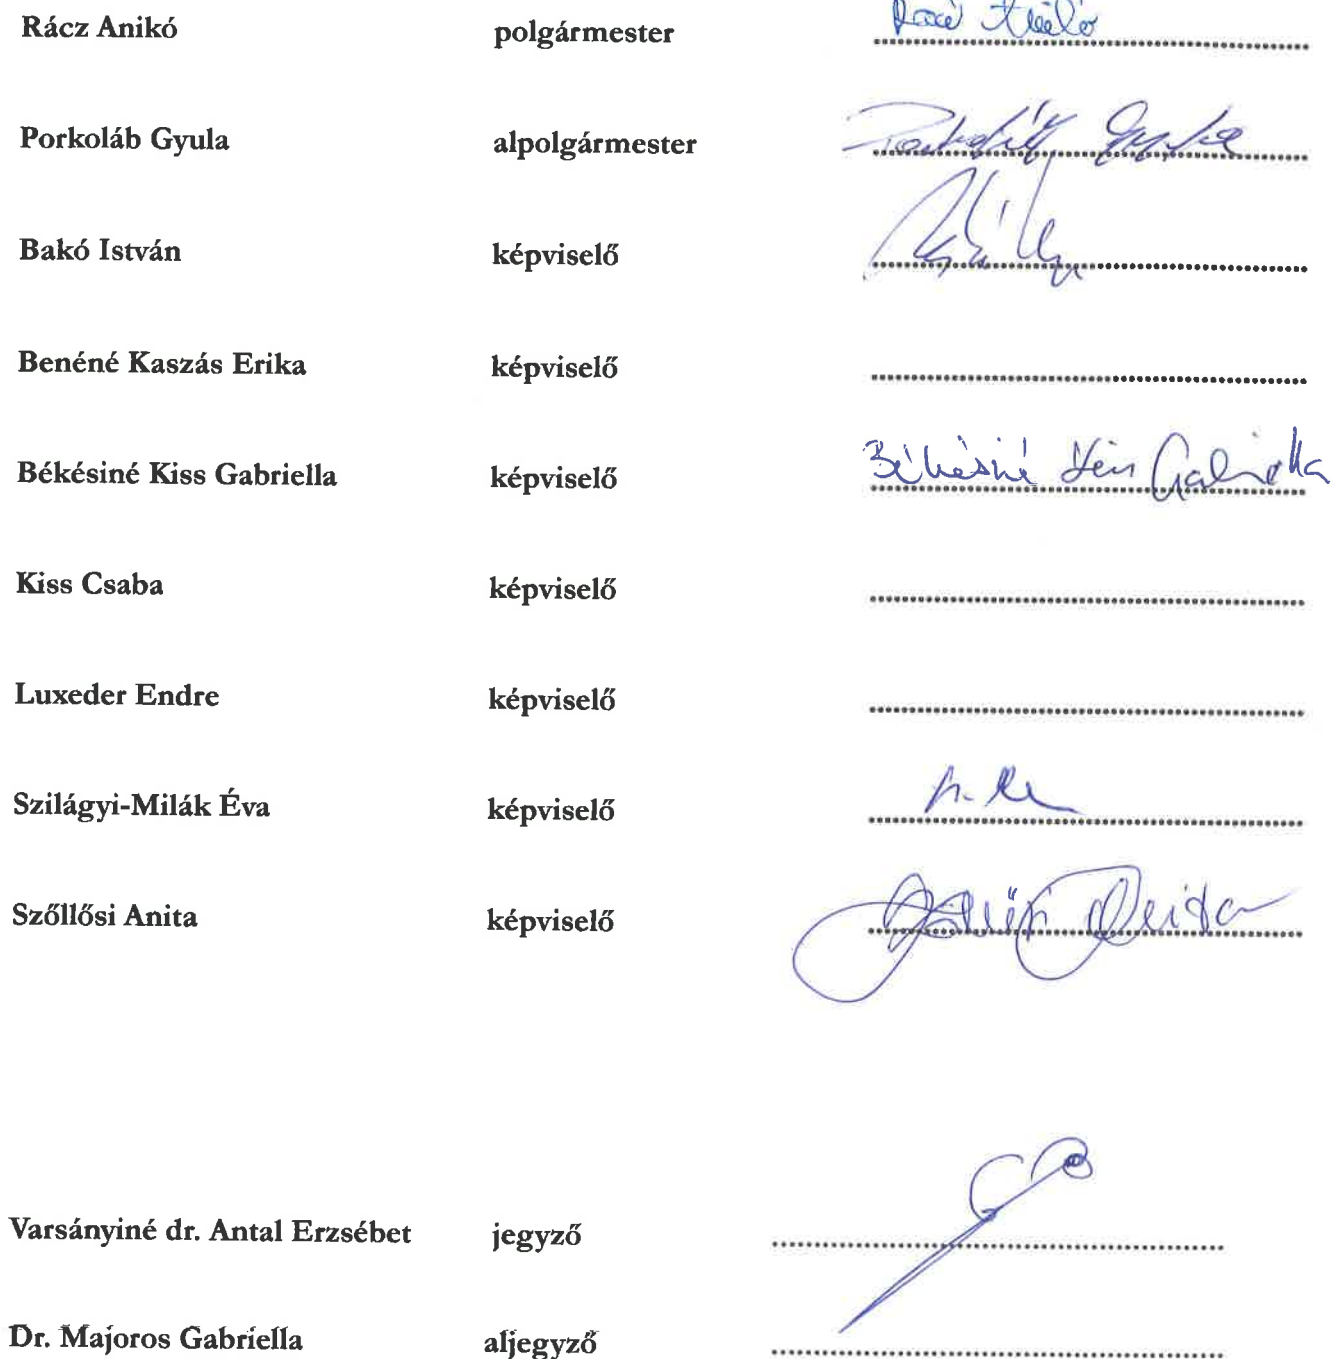 Rácz Anikó polgármester Rácz Anikó
Porkoláb Gyula alpolgármester Porkoláb Gyula
Bakó István képviselő
Benéné Kaszás Erika képviselő
Békésiné Kiss Gabriella képviselő Békésiné Kiss Gabriella
Kiss Csaba képviselő
Luxeder Endre képviselő
Szilágyi-Milák Éva képviselő
Szőllősi Anita képviselő Szőllősi Anita
Varsányiné dr. Antal Erzsébet jegyző
Dr. Majoros Gabriella aljegyző